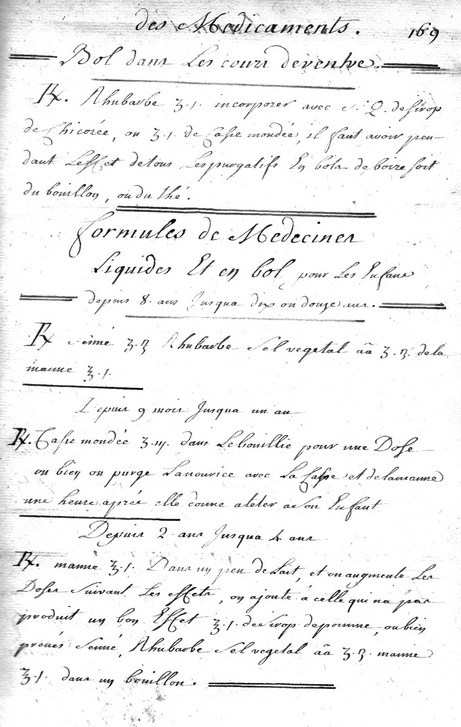 des Medicaments. 169
Bol dans Les cours de ventre.
℞. Rhubarbe ʒ.1. incorporer avec s. Q. de sirop
de Chicorée, ou ʒ.1. de Casse mondée, il faut avoir pen-
dant L'effet de tous Les purgatifs En bols de boire soit
du bouillon, ou du thé.
formules de Medecines
Liquides Et en bol pour Les Enfans
depuis 8. ans Jusqua dix ou douze ans.
℞ senné ʒ.ʒ Rhubarbe sel vegetal āā ʒ.ʒ. de la
manne ʒ.1.
Depuis 9 mois Jusqua un an
℞. Casse mondée ʒ.iij. dans Le bouillie pour une Dose
ou bien on purge La nourice avec La Casse et de la manne
une heure aprés elle donne a teter a son Enfant
Depuis 2 ans Jusqua 4 ans
℞. manne ʒ.1. Dans un peu de Lait, et on augmente Les
Doses suivant Les effets, on ajoute a celle qui na pas
produit un bon Effet ʒ.1. de sirop de pomme, ou bien
prenés senné, Rhubarbe sel vegetal āā ʒ.ʒ manne
ʒ.1. dans un bouillon.